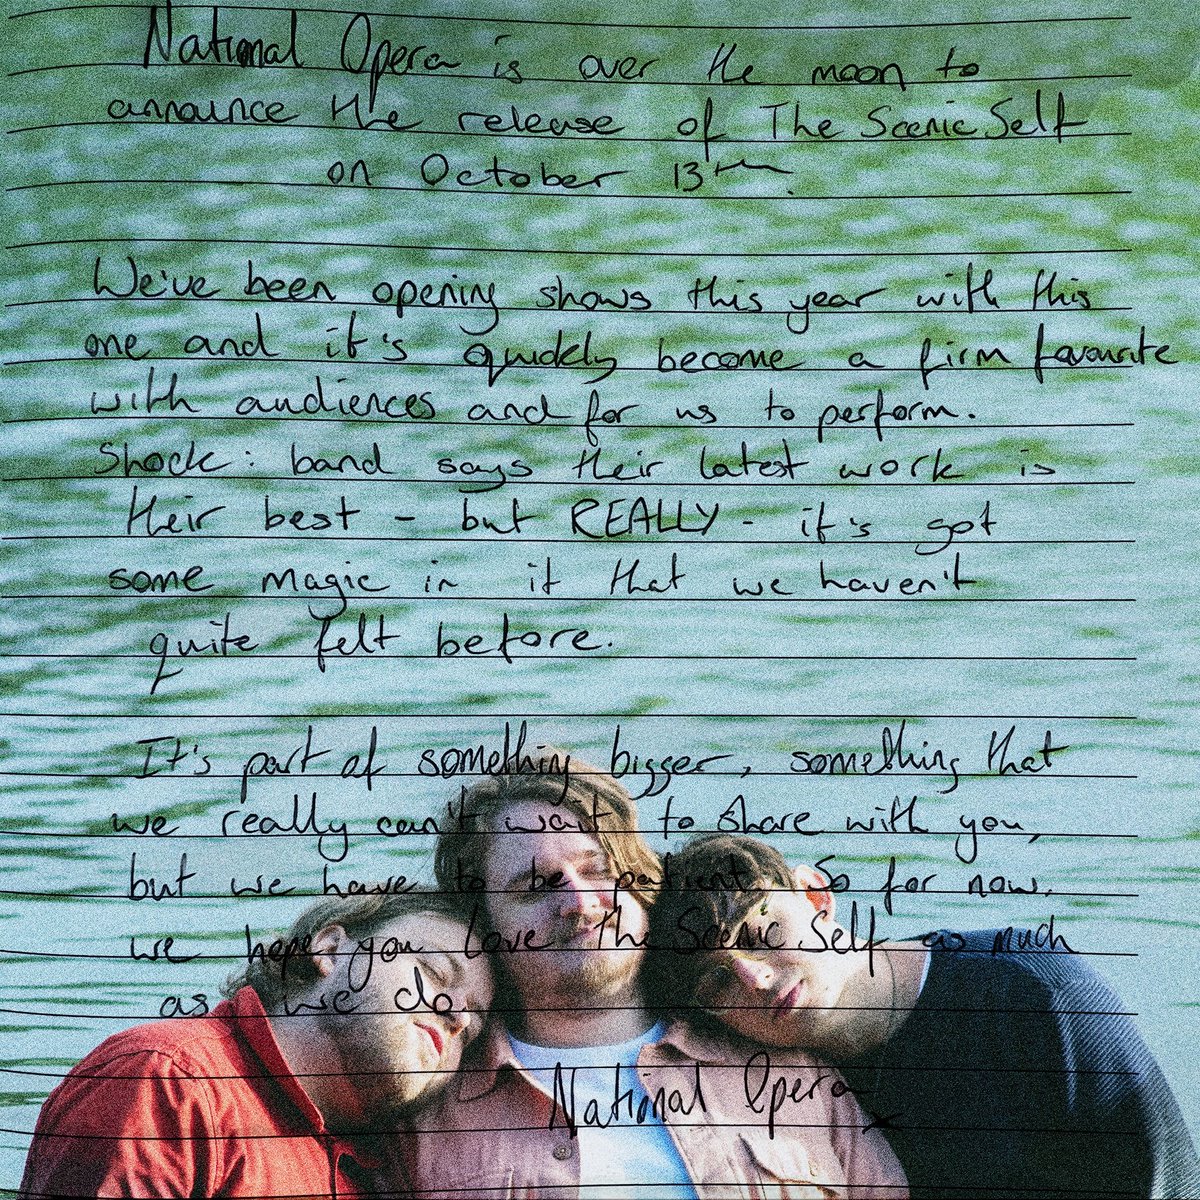 National Opera is over the moon to
announce the release of The Scenic Self
on October 13th.
We've been opening shows this year with this
one and it's quickly become a firm favourite
with audiences and for us to perform.
Shock: band says their latest work is
their best - but REALLY - it's got
some magic in it that we haven't
quite felt before.
It's part of something bigger, something that
we really can't wait to share with you,
but we have to be patient. So for now,
we hope you love The Scenic Self as much
as we do.
National Opera x